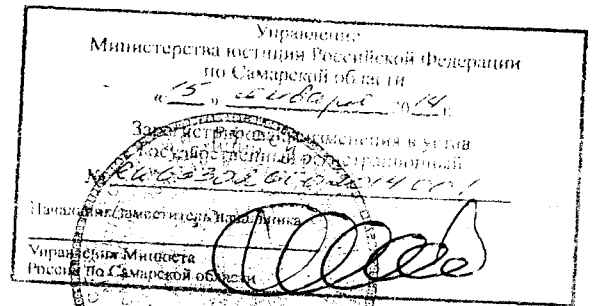 Управление
Министерства юстиции Российской Федерации
по Самарской области
«15» января 2014 г.
Зарегистрированы изменения в устав
Государственный регистрационный
№
Начальник (заместитель начальника
Управления Минюста
России по Самарской области